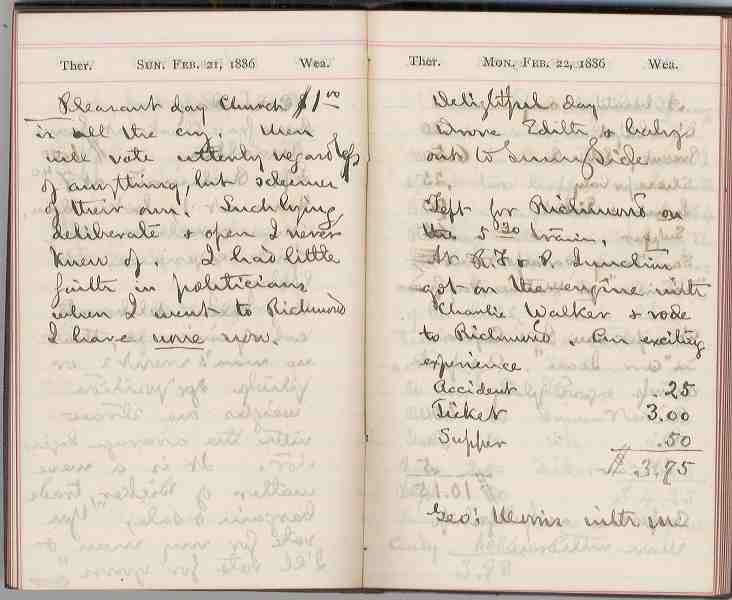 Ther. SUN. FEB. 21, 1886 Wea.
Pleasant day Church $1.00
is all the cry. Men
will vote utterly regardless
of anything, but schemes
of their own. Such lying
deliberate & open I never
knew of. I had little
faith in politicians
when I went to Richmond
I have none now.
Ther. MON. FEB. 22, 1886 Wea.
Delightful day
Drove Edith & baby
out to Sunny Side
Left for Richmond on
the 5 30 train.
At R.F & P. Junction
got on the engine with
Charlie Walker & rode
to Richmond. An exciting
experience.
Accident .25
Ticket 3.00
Supper .50
$ 3.75
Geo. Morris with me